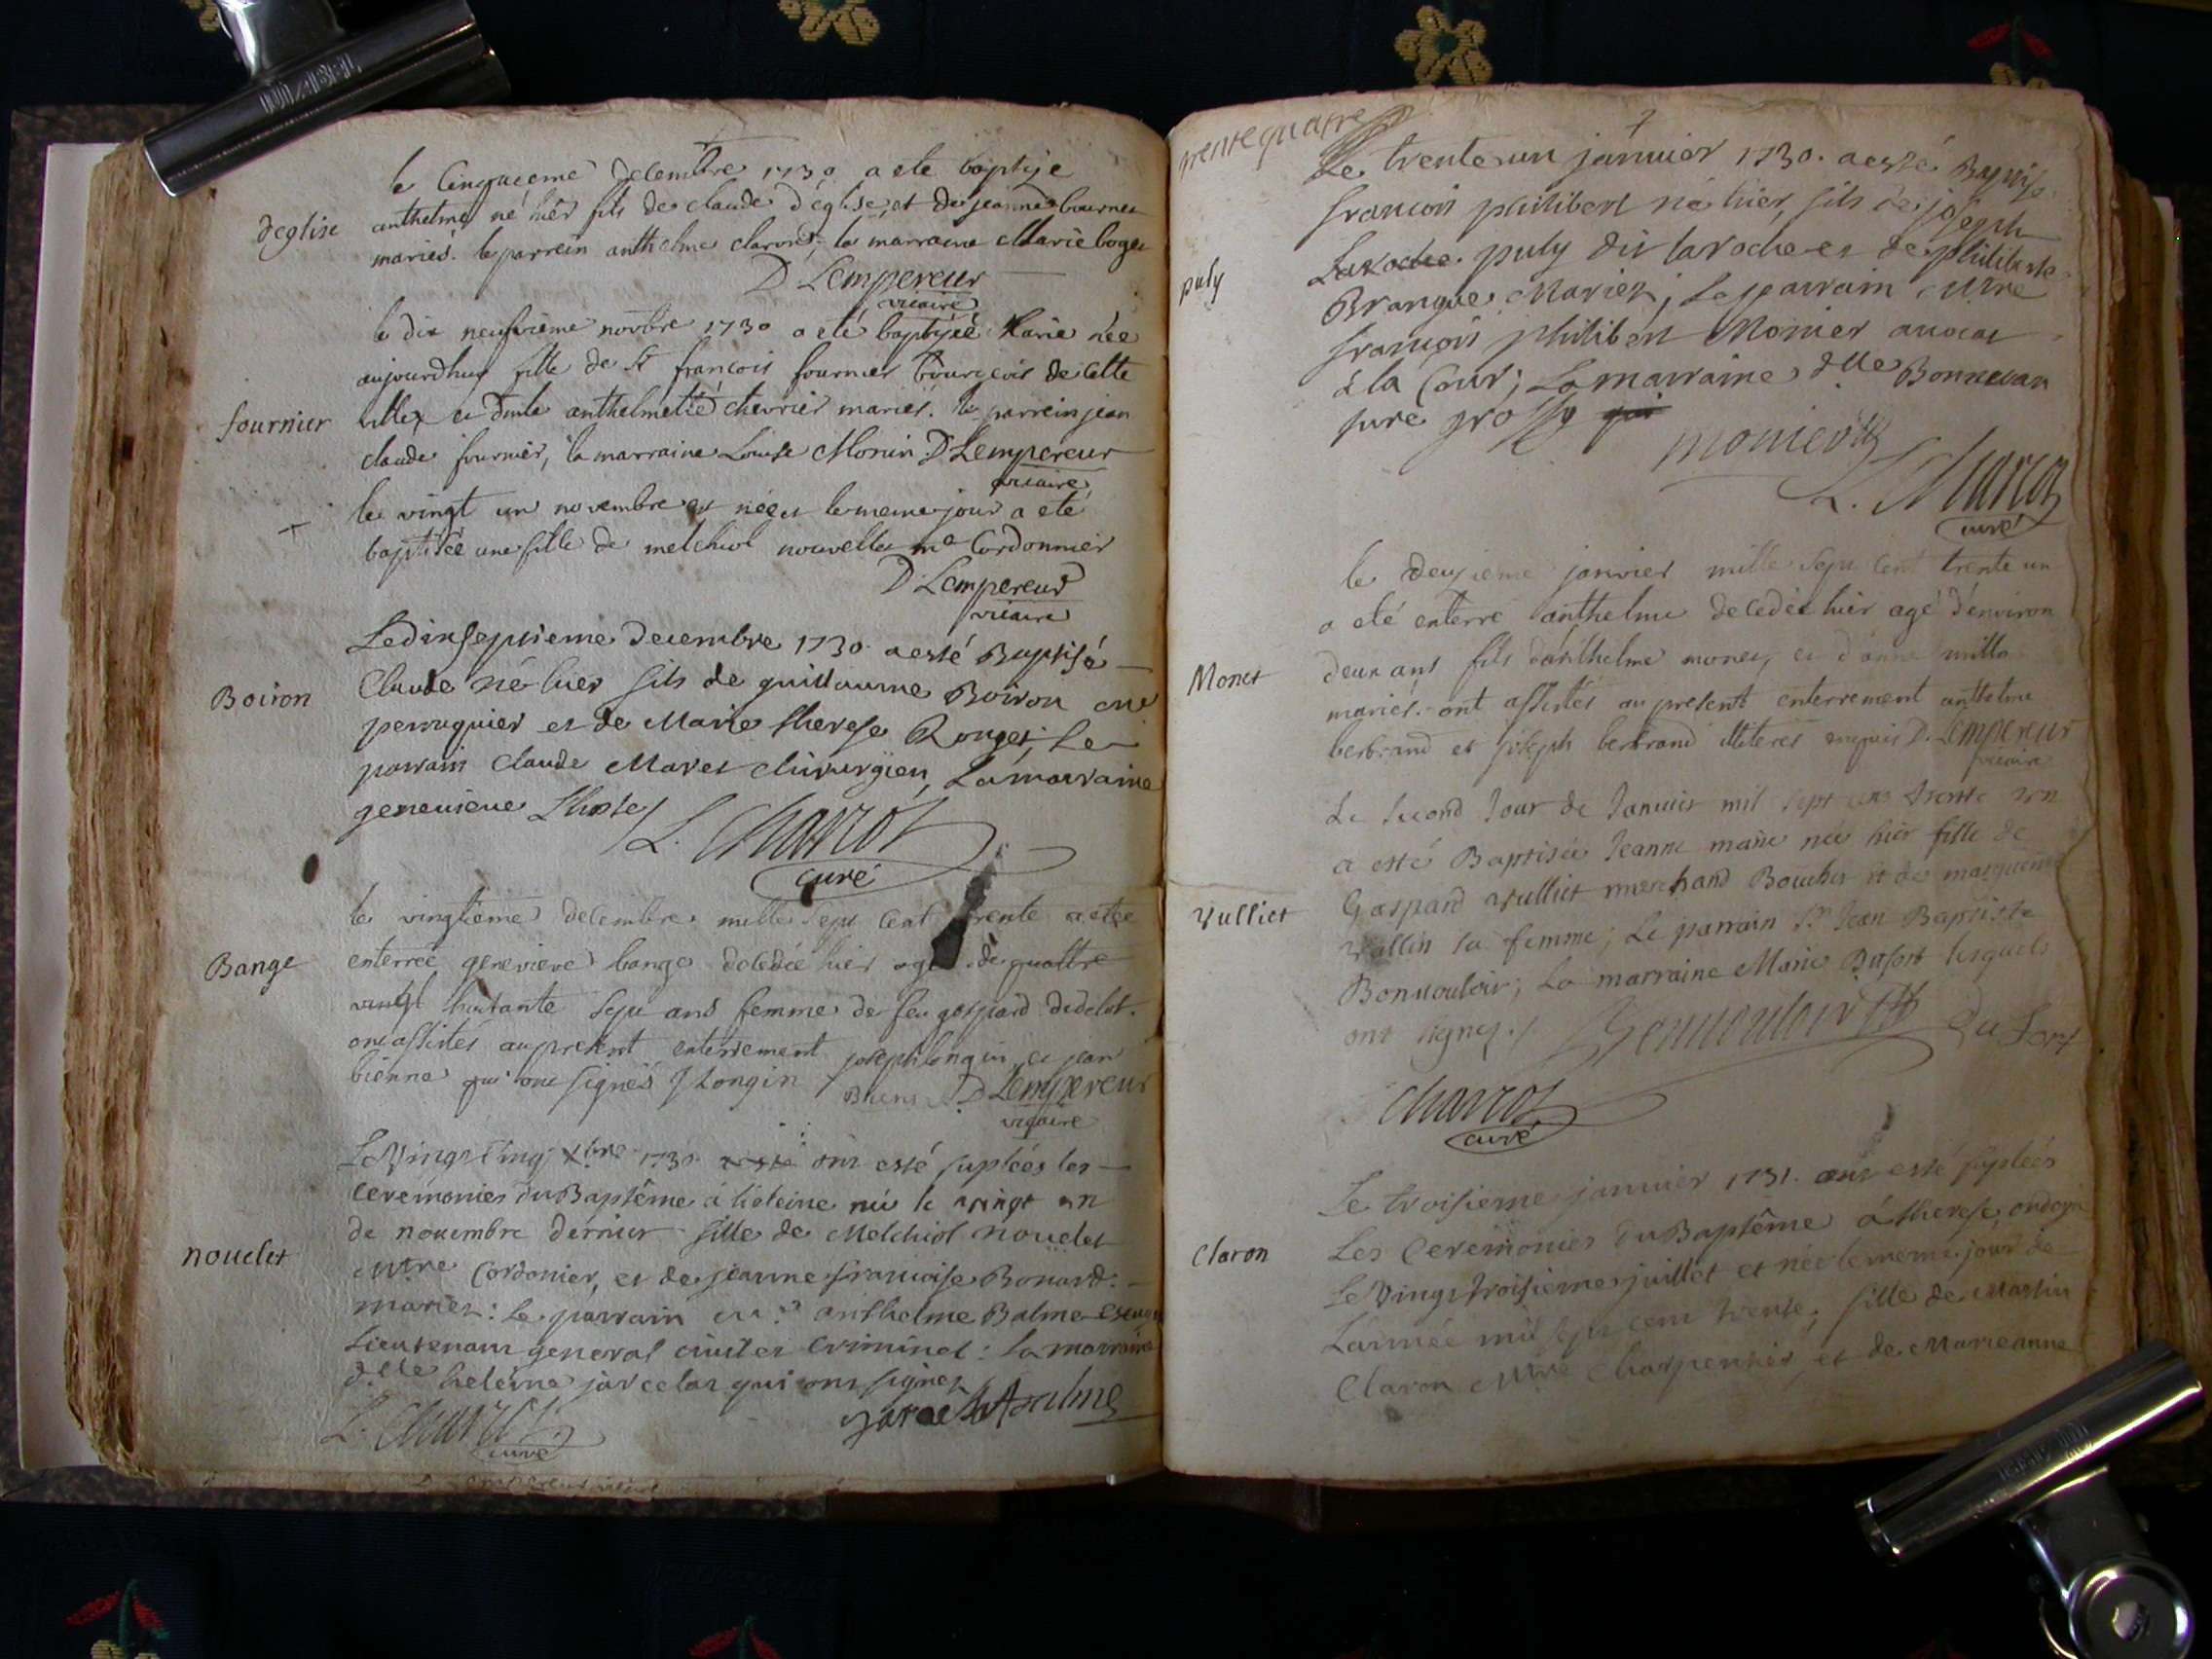 le Cinquieme decembre 1730 a ete baptisé
anthelme né hier fils de claude d'église, et de jeanne bournet
mariés. le parrein anthelme claron, la marraine Marie boget
D Lempereur
vicaire
d'eglise
le dix neufvieme novbre 1730 a eté baptisée Marie née
aujourdhuy fille de Sr francois fournier bourgeois de cette
ville et anthelmette chevrier mariés. le parrein jean
claude fournier, la marraine Louise Monin. D Lempereur
vicaire
fournier
le vingt un novembre et née le meme jour a eté
baptisée une fille de melchiol nouvellet me Cordonnier
D Lempereur
vicaire
Le dixseptieme decembre 1730 a esté Baptisé
Claude né hier fils de guillaume Boiron me
perruquier et de Marie therese Rouget; Le
parrain Claude Maret chirurgien, La marraine
genevieve
L. Charcot
curé
Boiron
le vingtieme decembre mille sept cent trente a etée
enterrée genevieve bange decedée hier agée de quattre
vingt huitante sept ans femme de feu gaspard didelot.
ont assistés au present enterrement joseph longin et jean
bienne qui ont signés J Longin
D Lempereur
vicaire
Bange
Le Vingt Cinq Xbre 1730 ont esté suplées les
ceremonies du Baptême à heleine née le vingt un
de novembre dernier fille de Melchiol nouelet
Mtre Cordonier, et de jeanne francoise Bonard
mariez: Le parrain anthelme Balme
Lieutenant general civil et Criminel: la marraine
dlle heleine jarcelat qui ont signez
L. Charcot
curé
Balme
nouelet
D Lempereur vicaire
trente quatre
Le trente un janvier 1730. a esté Baptisé
francois philibert né hier, fils de joseph
Laroche puly dit laroche et de philiberte
Brangue Mariez; Le parrain Mtre
francois philibert Monier avocat
à la Cour; La marraine dlle Bonnevan
ture grossy qui
monier
L. Charcot
curé
puly
le deuxieme janvier mille sept cent trente un
a eté enterré anthelme decedé hier agé d'environ
deux ans fils d'anthelme monet, et d'anne milla
mariés. ont assistés au present enterrement anthelme
berbrand et joseph berbrand illiterés D. Lempereur
vicaire
Monet
Le second Jour de Janvier mil sept cens trente un
a esté Baptisée Jeanne marie née hier fille de
Gaspard vulliet marchand Boucher et de
vallin sa femme; Le parrain Sr Jean Baptiste
Bonvouloir; La marraine Marie Dufort lesquels
ont signez./. Bonvouloir Du fort
Charcot
curé
Vulliet
Le troisieme janvier 1731. ont esté suplées
Les Ceremonies du Baptême à therese, ondoyé
Le Vingt troisieme juillet et née le meme jour de
L'année mil sept cent trente; fille de Martin
Claron Mtre Charpentier, et de Marieanne
Claron